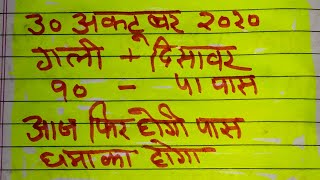 ३० अक्टूबर २०२०
गली + दिसावर
१० - ५१ पास
आज फिर होगी पास
धमाका होगा